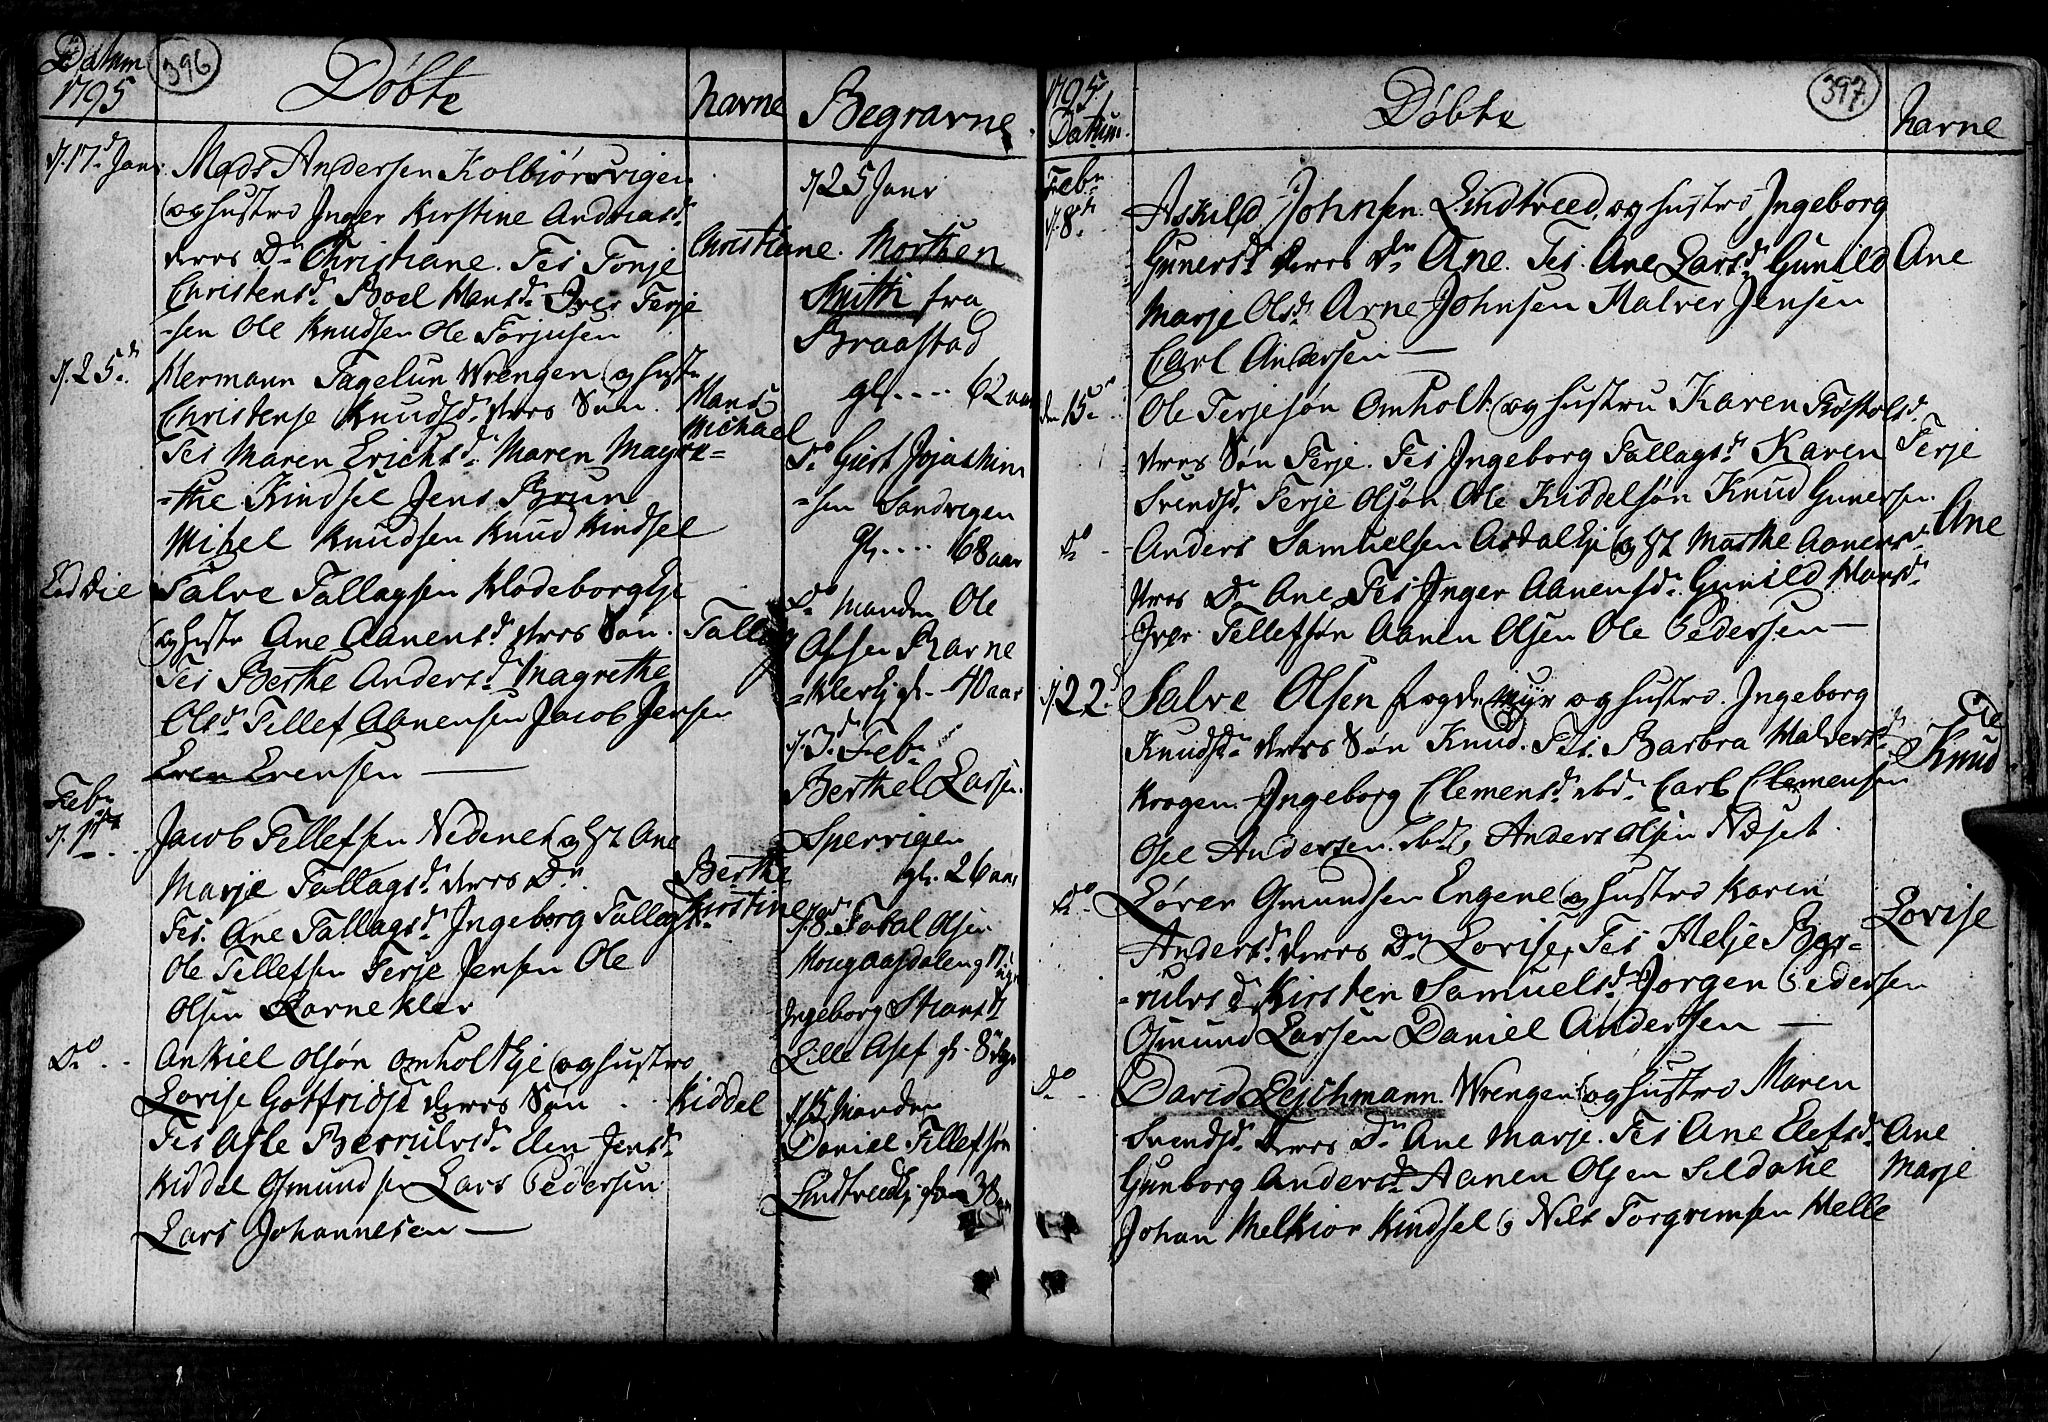 Datum
1795
396
Døbte
Navne
Begravne
d. 17d Janr
Mads Andersen Kolbiørnsvigen
og hustro Inger Kirstine Andreasd.
deres Dr Christiane. Tes Tonje
Christensd. Boel Hansd. Iver Terje
-sen Ole Knudsen Ole Torjusen
Christiane
d. 25d
Hermann Wrengen og hust
Christense Knudsd. deres Søn
Tes Maren Erichsd. Maren Magre=
=the Kindsel Jens Brun
Mikel Knudsen Knud Kindsel
Hans
Michael
Eod Die
Salve Tallagsen Klodeborg
og hustr Ane Aanensd. deres Søn.
Tes Berthe Andersd. Magrethe
Olsd. Tellef Aanensen Jacob Jensen
Even Evensen
Tallag
Febr
d. 1ste
Jacob Tellefsen Nedenes og H Ane
Marje Tallagsd. deres Dr.
Tes. Ane Tallagsd. Ingeborg Tallagsd.
Ole Tellefsen Terje Jensen Ole
Olsen Barnekler
Berthe
Kirstine
Do
Ankiel Olsøn Omholt og hustro
Lovise Gotfridsd deres Søn
Tes Asle Berrulvsd. Elen Jensd.
Kiddel Osmundsen Lars Pedersen
Lars Johannesen
Kiddel
d 25 Janr
Morthen
Smith fra
Braastad
gl. .... 62 aar
Do Giert Jojachim
-sen Sandvigen
gl. .... 68 aar
Do Manden Ole
Olsen Barne
=klev gl. 40 aar
d. 3d Febr
Berthel Larsen
Spervigen
gl. 26 aar
d. 8d Olsen
17
Ingeborg
Lille gl. 8
d. 15 Manden
Daniel Tellefsøn
Lindtveed 38 aar
1795
Datum
Døbte
397
Navne
Febr
d. 8de
Askild Johnsen Lindtveed og hustro Ingeborg
Gunersd. deres Dr Ane. Tes. Ane Larsd. Gunild
Marje Olsd. Arne Johnsen Halver Jensen
Carl Andersen
Ane
den 15de
Ole Terjesøn Omholt og hustru Karen
deres Søn Terje. Tes Ingeborg Tallagsd. Karen
Svendsd. Terje Olsøn Ole Kiddelsøn Knud Gunersen
Terje
Do
Anders Samuelsen Asdal og H Marthe Aanensd.
deres Dr Ane Tes Inger Aanensd. Gunild Hansd.
Iver Tellefsøn Aanen Olsen Ole Pedersen
Ane
d 22d
Salve Olsen Myr og hustro Ingeborg
Knudsd. deres Søn Knud. Tes. Barbra Halversd.
Krogen. Ingeborg Clemensd. ibd. Carl Clemensen
Osel Andersen. ibd. Anders Olsen Nedset
Knud
Do
Lørens Osmundsen Engene og hustro Karen
Andersd. deres Dr Lovise, Tes Helje Ber=
=rulvsd. Kirsten Samuelsd. Jorgen Pedersen
Osmund Larsen Daniel Andersen
Lovise
Do
David Lejchmann. Wrengen og hustro Maren
Svendsd. deres Dr Ane Marje. Tes Ane Elefsd.
Gunborg Andersd. Aanen Olsen Seldahl
Johan Melkior Kindsel og Nels Torgrimsen Helle
Ane
Marje